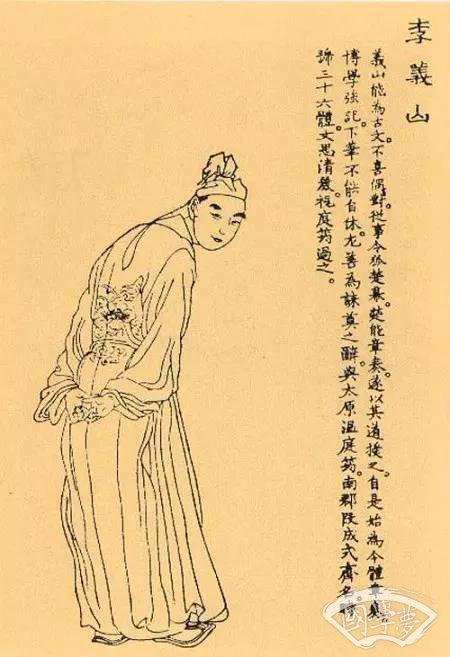 李義山
義山能為古文。不喜偶對。從事令狐楚幕。楚能章奏。遂以其道授之。自是始為今體章奏。
博學強記。下筆不能自休。尤善為誄奠之辭。與太原溫庭筠。南郡段成式齊名。時
號三十六體。文思清麗。視庭筠過之。
國學夢